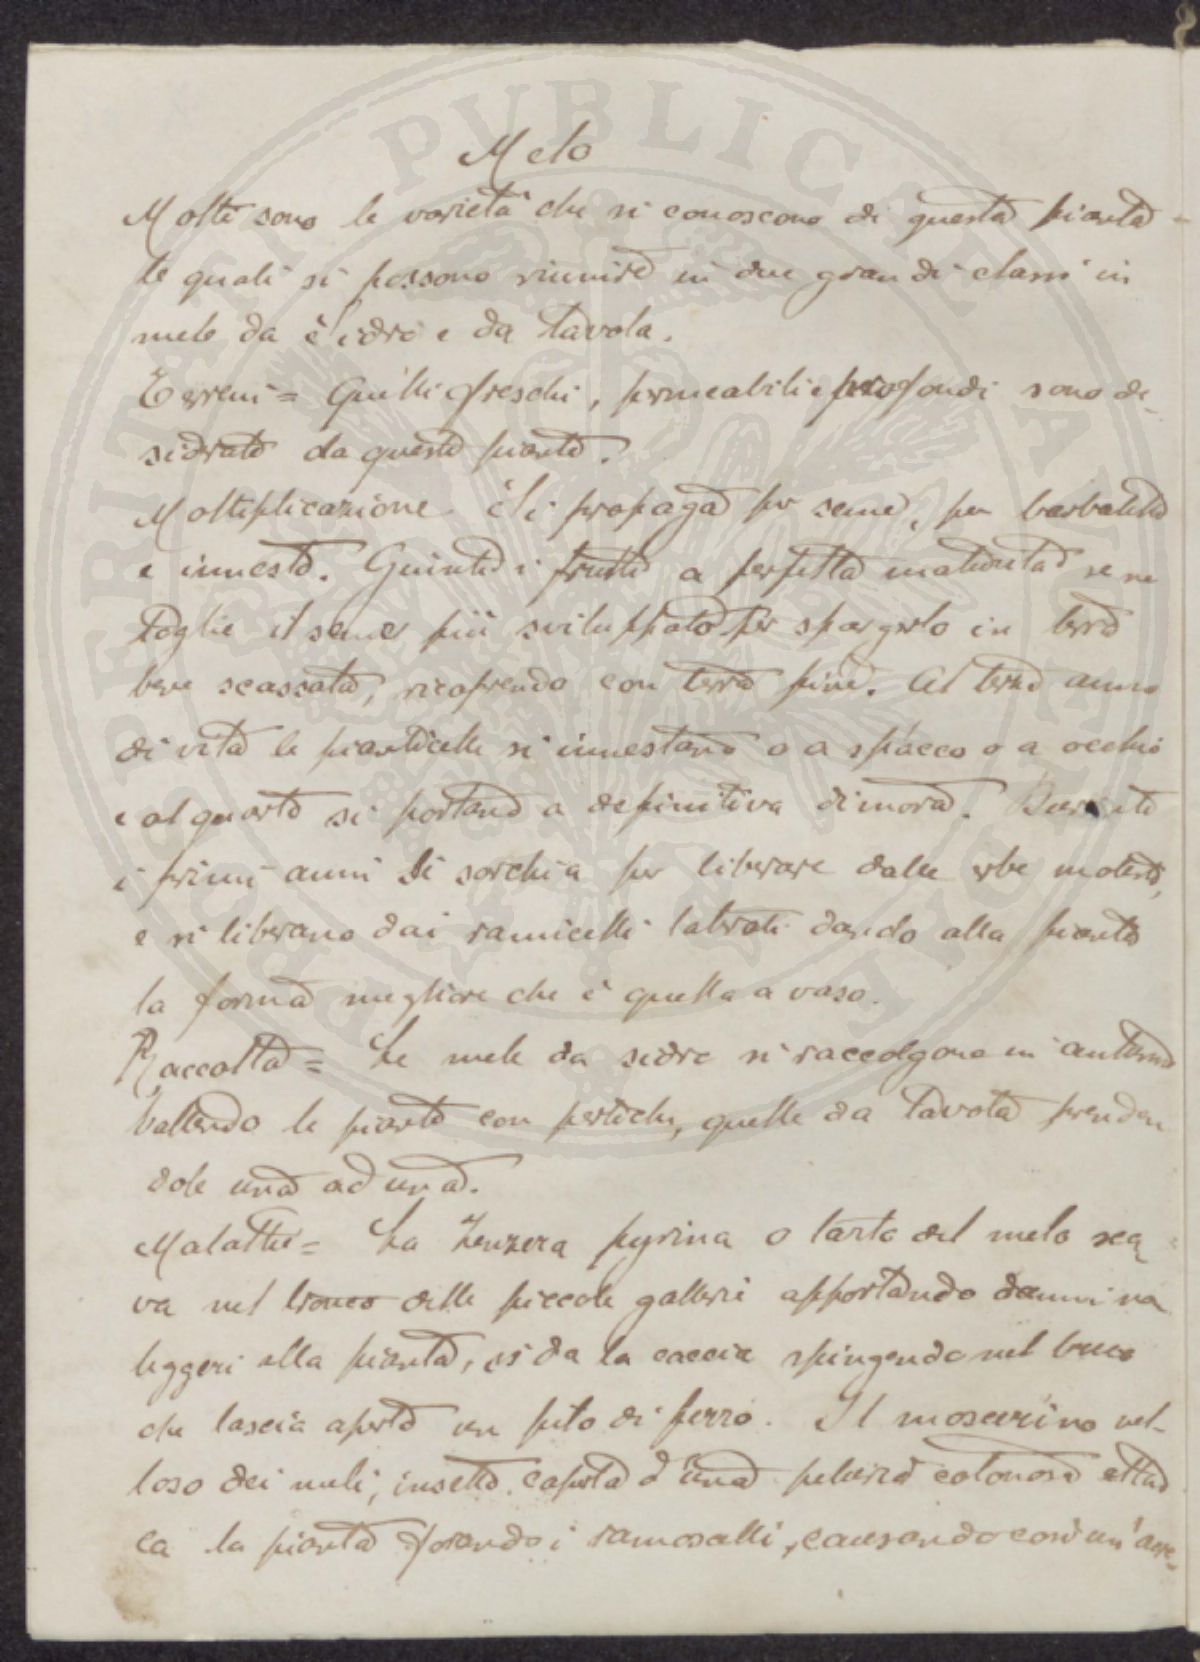 Melo
Molte sono le varietà che si conoscono di questa pianta
le quali si possono riunire in due grandi classi in
mele da sidro e da tavola.
Terreni = Quelli freschi, permeabili e profondi sono de-
siderate da queste piante.
Moltiplicazione Si propaga per seme, per barbatelle
e innesto. Giunte i frutti a perfetta maturità se ne
toglie il seme più sviluppato per spargerlo in terra
bene scassata, ricoprendo con terra fine. Al terzo anno
di vita le pianticelle si innestano o a spacco o a occhio
e al quarto si portano a definitiva dimora. Durante
i primi anni si sarchia per liberare dalle erbe moleste,
e si liberano dai ramicelli laterali dando alla pianta
la forma migliore che è quella a vaso.
Raccolta = Le mele da sidro si raccolgono in autunno
battendo le piante con pertiche, quelle da tavola prenden
dole una ad una.
Malattie = La Zeuzera pyrina o tarlo del melo sca-
va nel tronco delle piccole gallerie apportando danni no
leggeri alla pianta, si da la caccia spingendo nel buco
che lascia aperto un filo di ferro. Il moscerino vel-
loso dei meli, insetto coperta d'una peluria cotonosa attac
ca la pianta forando i ramoscelli, causando così un'